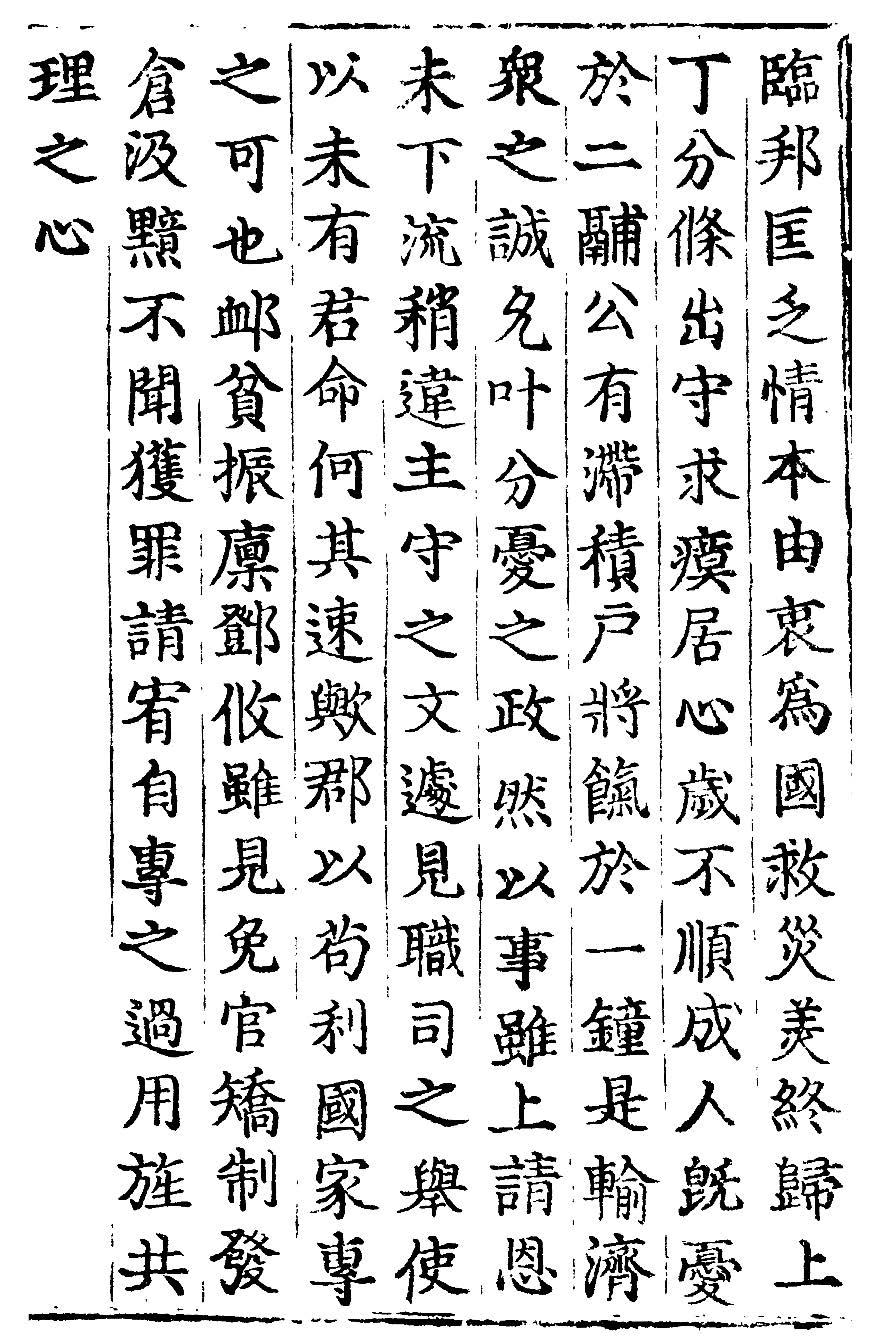 臨邦匡乏情本由衷爲國救災羙終歸上
丁分條出守求瘼居心歲不順成人旣憂
於二鬴公有滯積戶將餼於一鐘是輸濟
衆之誠允叶分憂之政然以事雖上請恩
未下流稍違主守之文遽見職司之舉使
以未有君命何其速歟郡以苟利國家專
之可也䘏貧振廩鄧攸雖見免官矯制發
倉汲黯不聞獲罪請宥自專之過用旌共
理之心